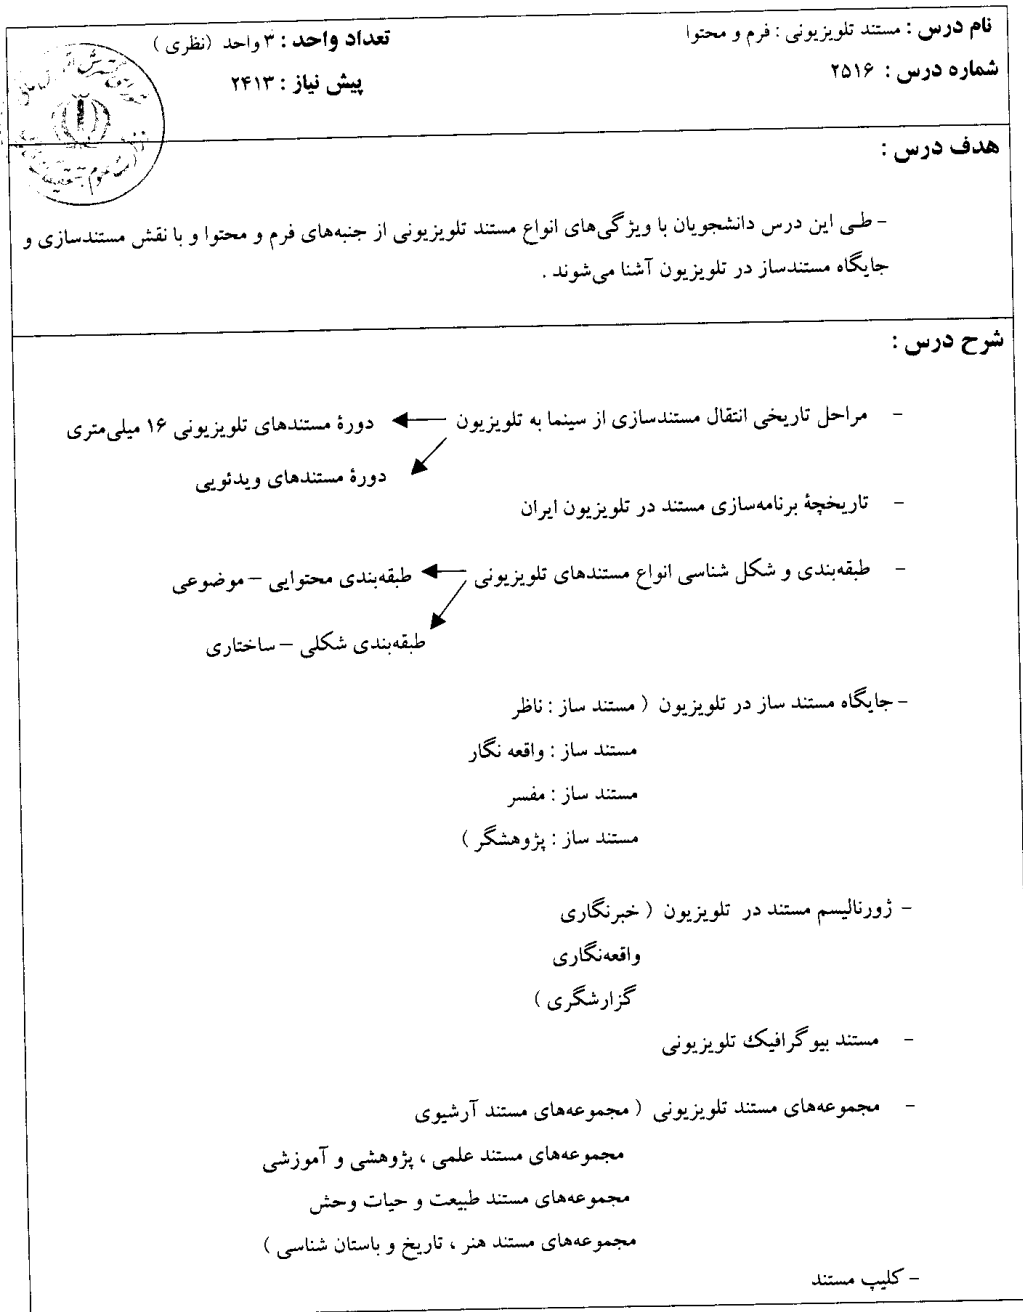 نام درس : مستند تلویزیونی : فرم و محتوا
تعداد واحد : ۳ واحد (نظری )
شماره درس : ۲۵۱۶
پیش نیاز : ۲۴۱۳
هدف درس :
- طی این درس دانشجویان با ویژگی‌های انواع مستند تلویزیونی از جنبه‌های فرم و محتوا و با نقش مستندسازی و
جایگاه مستندساز در تلویزیون آشنا می‌شوند .
شرح درس :
- مراحل تاریخی انتقال مستندسازی از سینما به تلویزیون ← دورۀ مستندهای تلویزیونی ۱۶ میلی‌متری
دورۀ مستندهای ویدئویی
- تاریخچۀ برنامه‌سازی مستند در تلویزیون ایران
- طبقه‌بندی و شکل شناسی انواع مستندهای تلویزیونی ← طبقه‌بندی محتوایی – موضوعی
طبقه‌بندی شکلی – ساختاری
- جایگاه مستند ساز در تلویزیون ( مستند ساز : ناظر
مستند ساز : واقعه نگار
مستند ساز : مفسر
مستند ساز : پژوهشگر )
- ژورنالیسم مستند در تلویزیون ( خبرنگاری
واقعه‌نگاری
گزارشگری )
- مستند بیوگرافیک تلویزیونی
- مجموعه‌های مستند تلویزیونی ( مجموعه‌های مستند آرشیوی
مجموعه‌های مستند علمی ، پژوهشی و آموزشی
مجموعه‌های مستند طبیعت و حیات وحش
مجموعه‌های مستند هنر ، تاریخ و باستان شناسی )
- کلیپ مستند